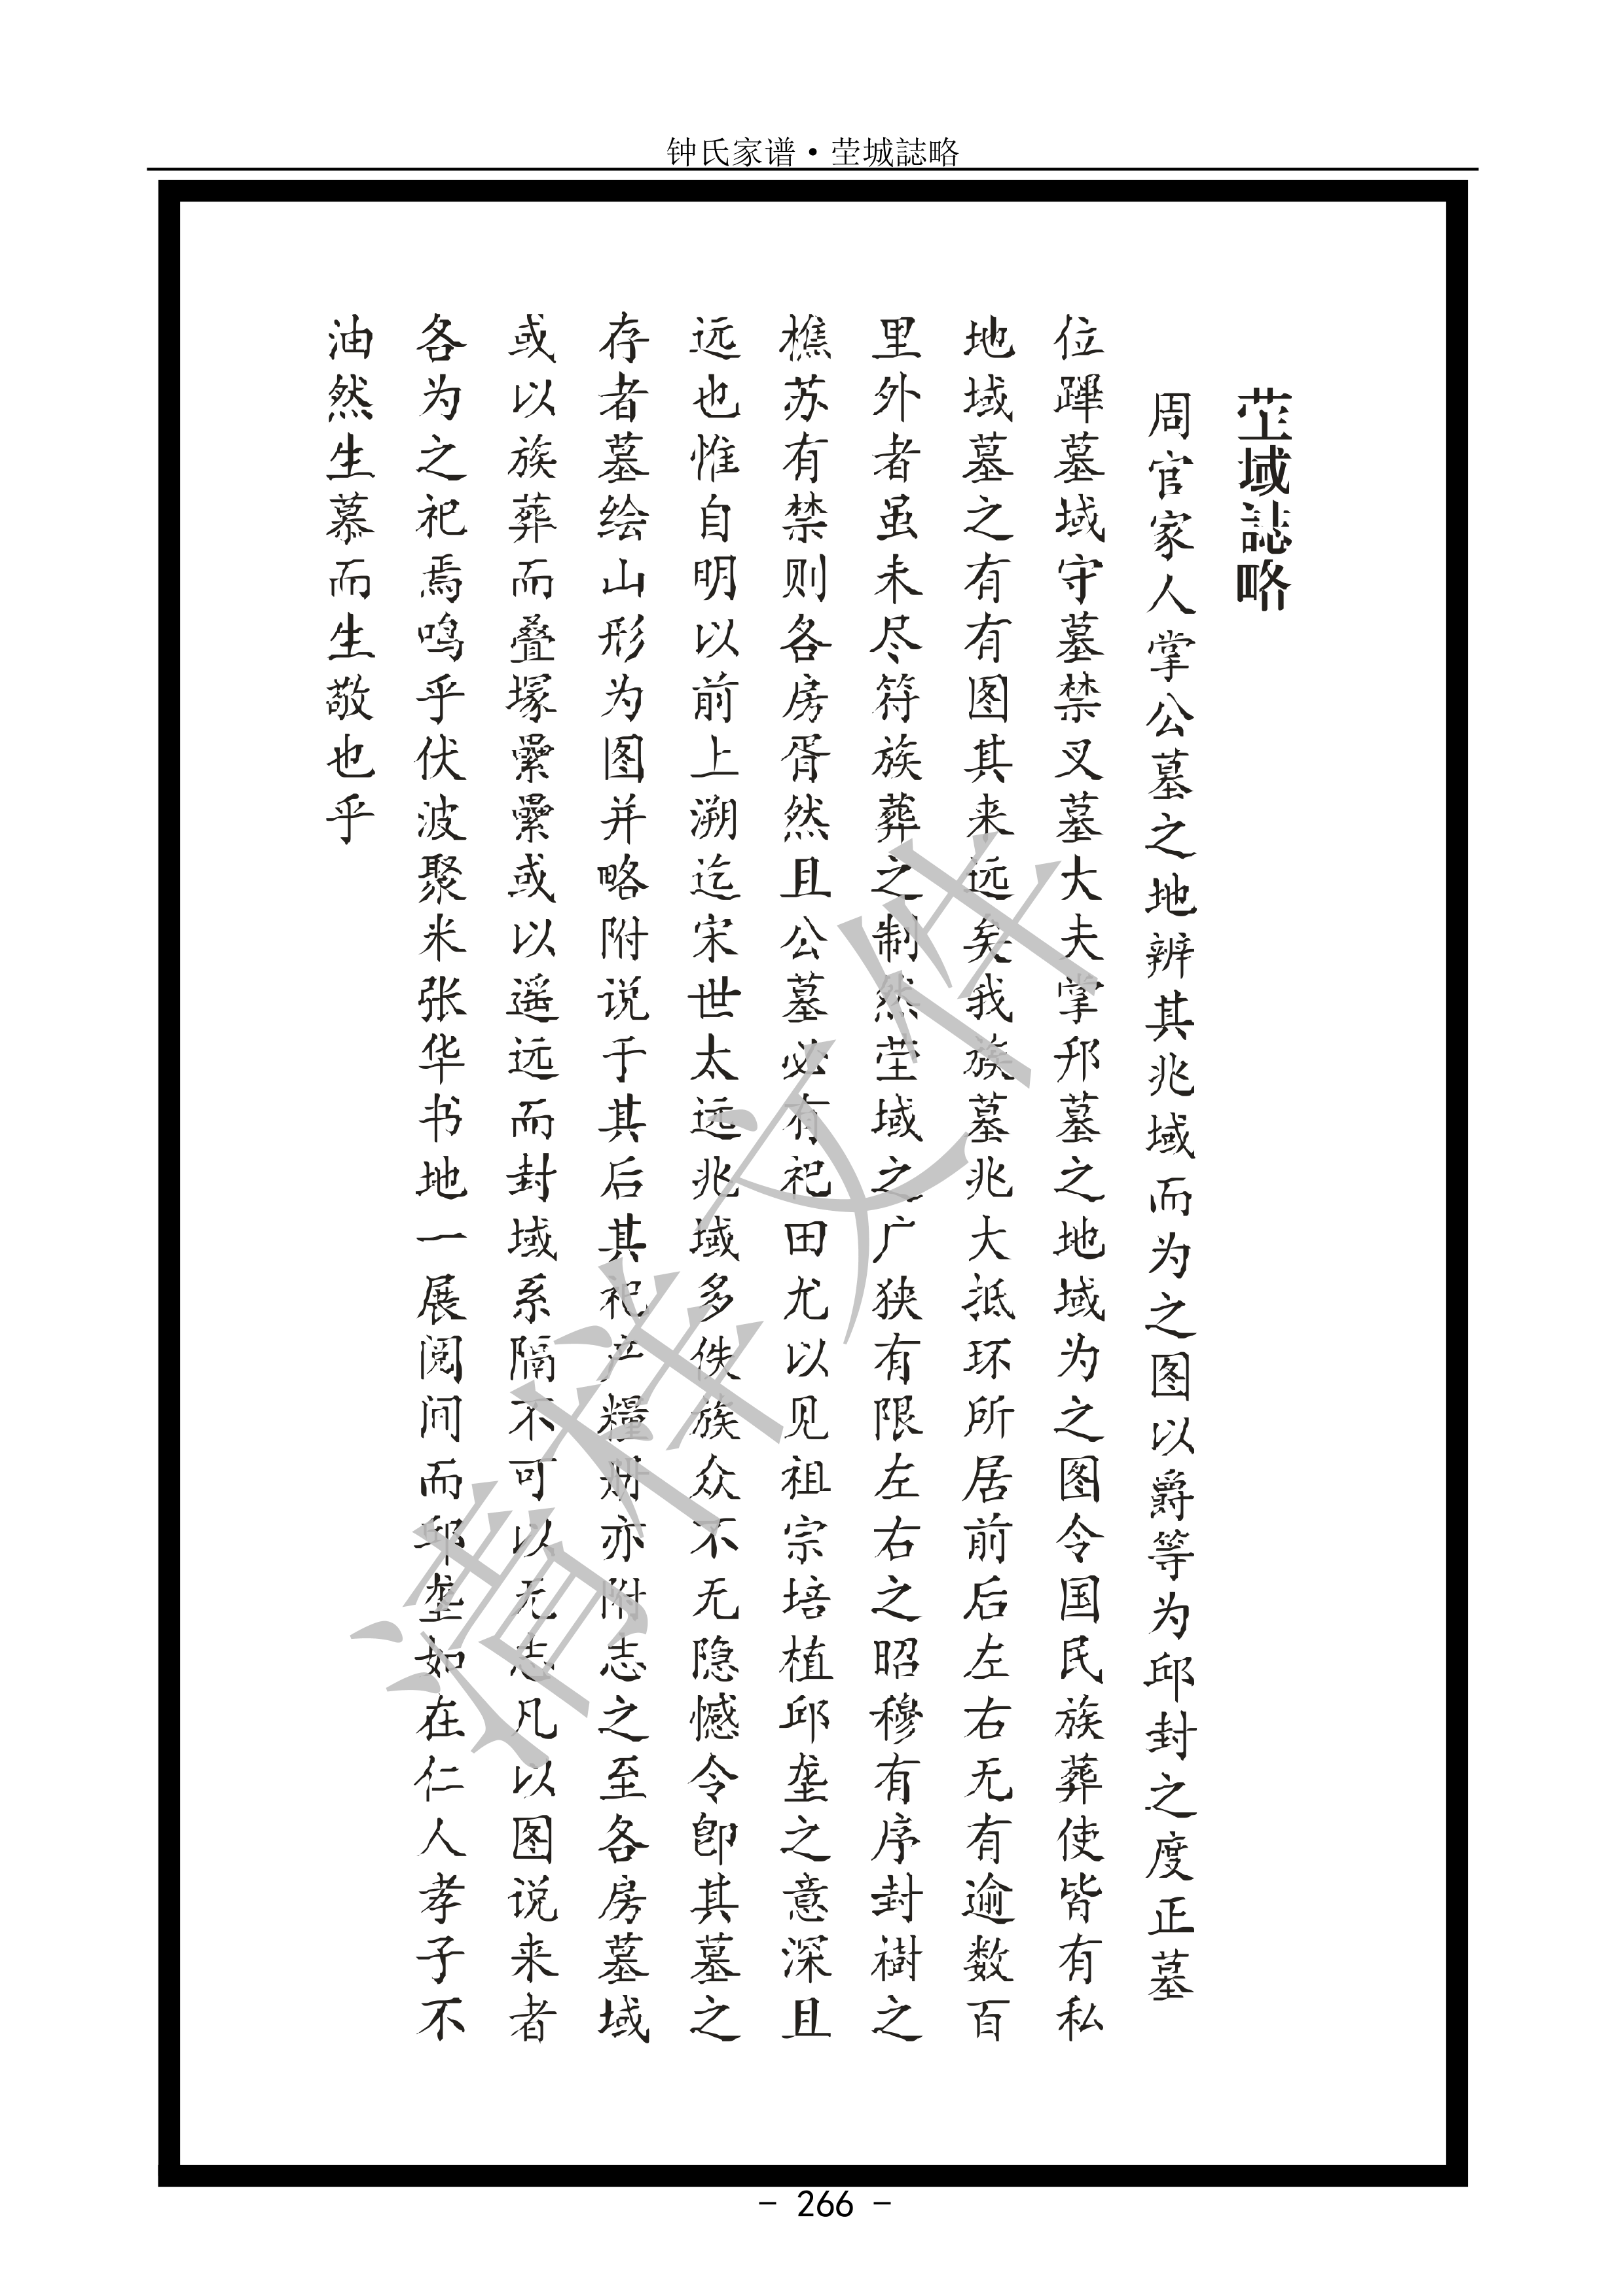 钟氏家谱·茔城誌略
茔域誌略
周官家人掌公墓之地辨其兆域而为之图以爵等为邱封之度正墓
位蹕墓域守墓禁叉墓大夫掌邦墓之地域为之图令国民族葬使皆有私
地域墓之有有图其来远矣我族墓兆大抵环所居前后左右无有逾数百
里外者虽未尽符族葬之制然茔域之广狭有限左右之昭穆有序封樹之
樵苏有禁则各房胥然且公墓必有祀田尤以见祖宗培植邱垄之意深且
远也惟自明以前上溯迄宋世太远兆域多佚族众不无隐憾令即其墓之
存者墓绘山形为图并略附说于其后其祀产糧册亦附志之至各房墓域
或以族葬而叠塚纍纍或以遥远而封域系隔不可以无志凡以图说来者
各为之祀焉鸣乎伏波聚米张华书地一展阅间而邱垄如在仁人孝子不
油然生慕而生敬也乎
清样文件
- 266 -